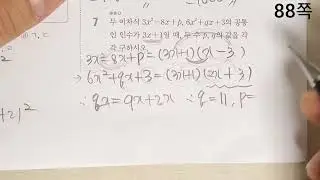 88쪽
7 두 이차식 3x²-8x+p, 6x²+qx+3의 공통
인 인수가 3x+1일 때, 두 수 p, q의 값을 각
각 구하시오.
3x²-8x+p=(3x+1)(x-3)
→6x²+qx+3=(3x+1)(2x+3)
∴qx=9x+2x ∴q=11, p=